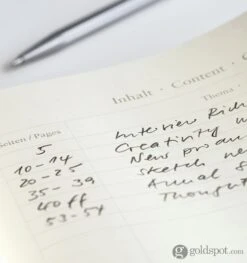 Inhalt · Content ·
Seiten / Pages
Thema ·
5 Interview Rich
10 - 14 Creativity
20 - 25 New produ
35 - 39 Sketch ne
40 ff Annual
53 - 54 Thought
goldspot.com